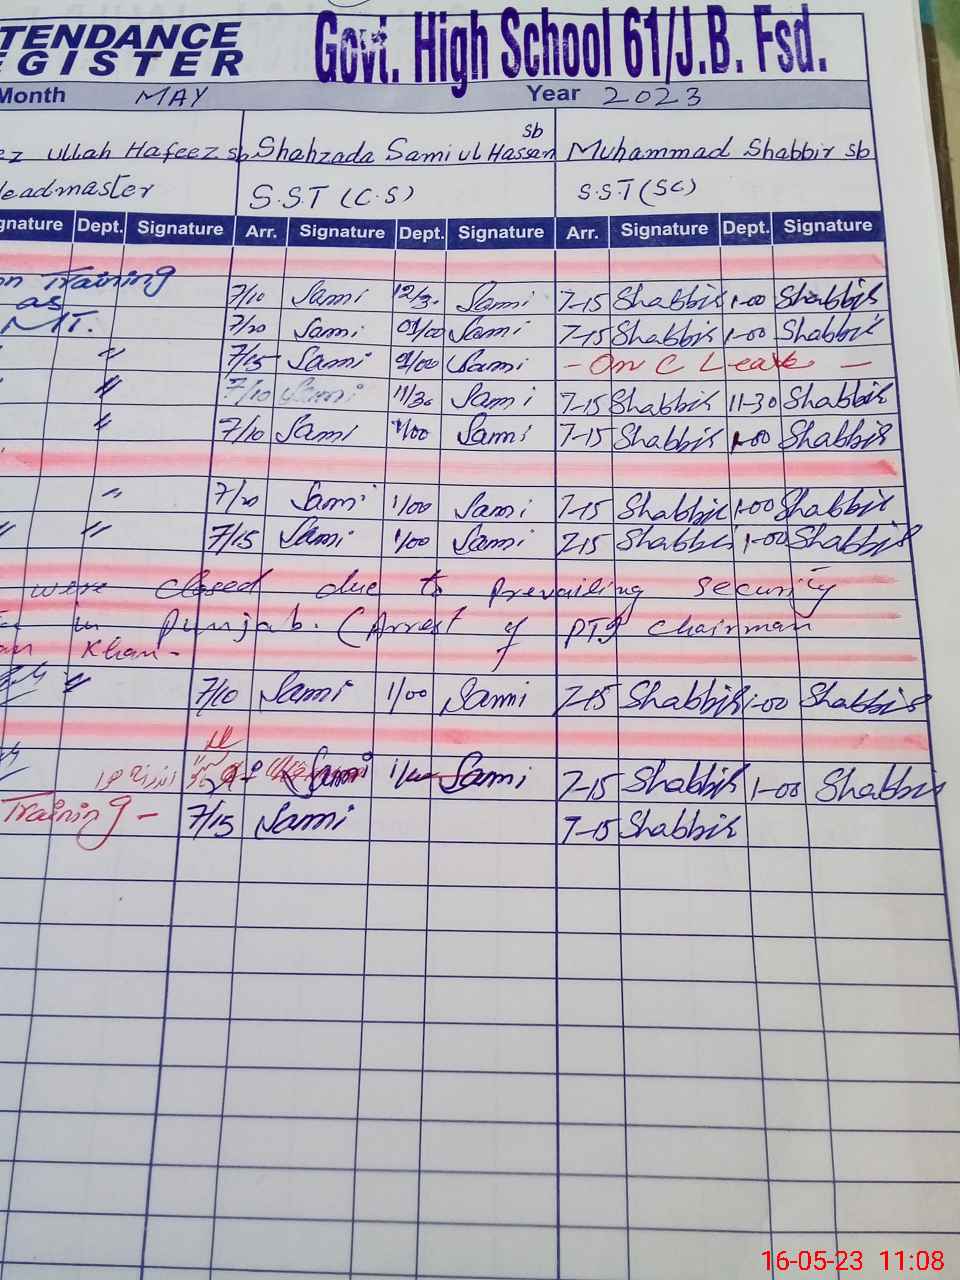 TENDANCE
EGISTER
Govt. High School 61/J.B. Fsd.
Month MAY Year 2023
ez ullah Hafeez sb Shahzada Sami ul Hassan sb Muhammad Shabbir sb
eadmaster S.S.T (C.S) S.S.T (SC)
gnature Dept. Signature Arr. Signature Dept. Signature Arr. Signature Dept. Signature
on Training
as 7/10 Sami 12/30 Sami 7-15 Shabbir 1-00 Shabbir
MT. 7/20 Sami 01/00 Sami 7-15 Shabbir 1-00 Shabbir
" 7/15 Sami 01/00 Sami - On C Leave -
" 7/10 Sami 11/30 Sami 7-15 Shabbir 11-30 Shabbir
" 7/10 Sami 1/00 Sami 7-15 Shabbir 1-00 Shabbir
" 7/20 Sami 1/00 Sami 7-15 Shabbir 1-00 Shabbir
" " 7/15 Sami 1/00 Sami 7-15 Shabbir 1-00 Shabbir
were closed due to prevailing security
in Punjab. (Arrest of PTI Chairman
an Khan-
" 7/10 Sami 1/00 Sami 7-15 Shabbir 1-00 Shabbir
Sami Sami 7-15 Shabbir 1-00 Shabbir
Training - 7/15 Sami 7-15 Shabbir
16-05-23 11:08